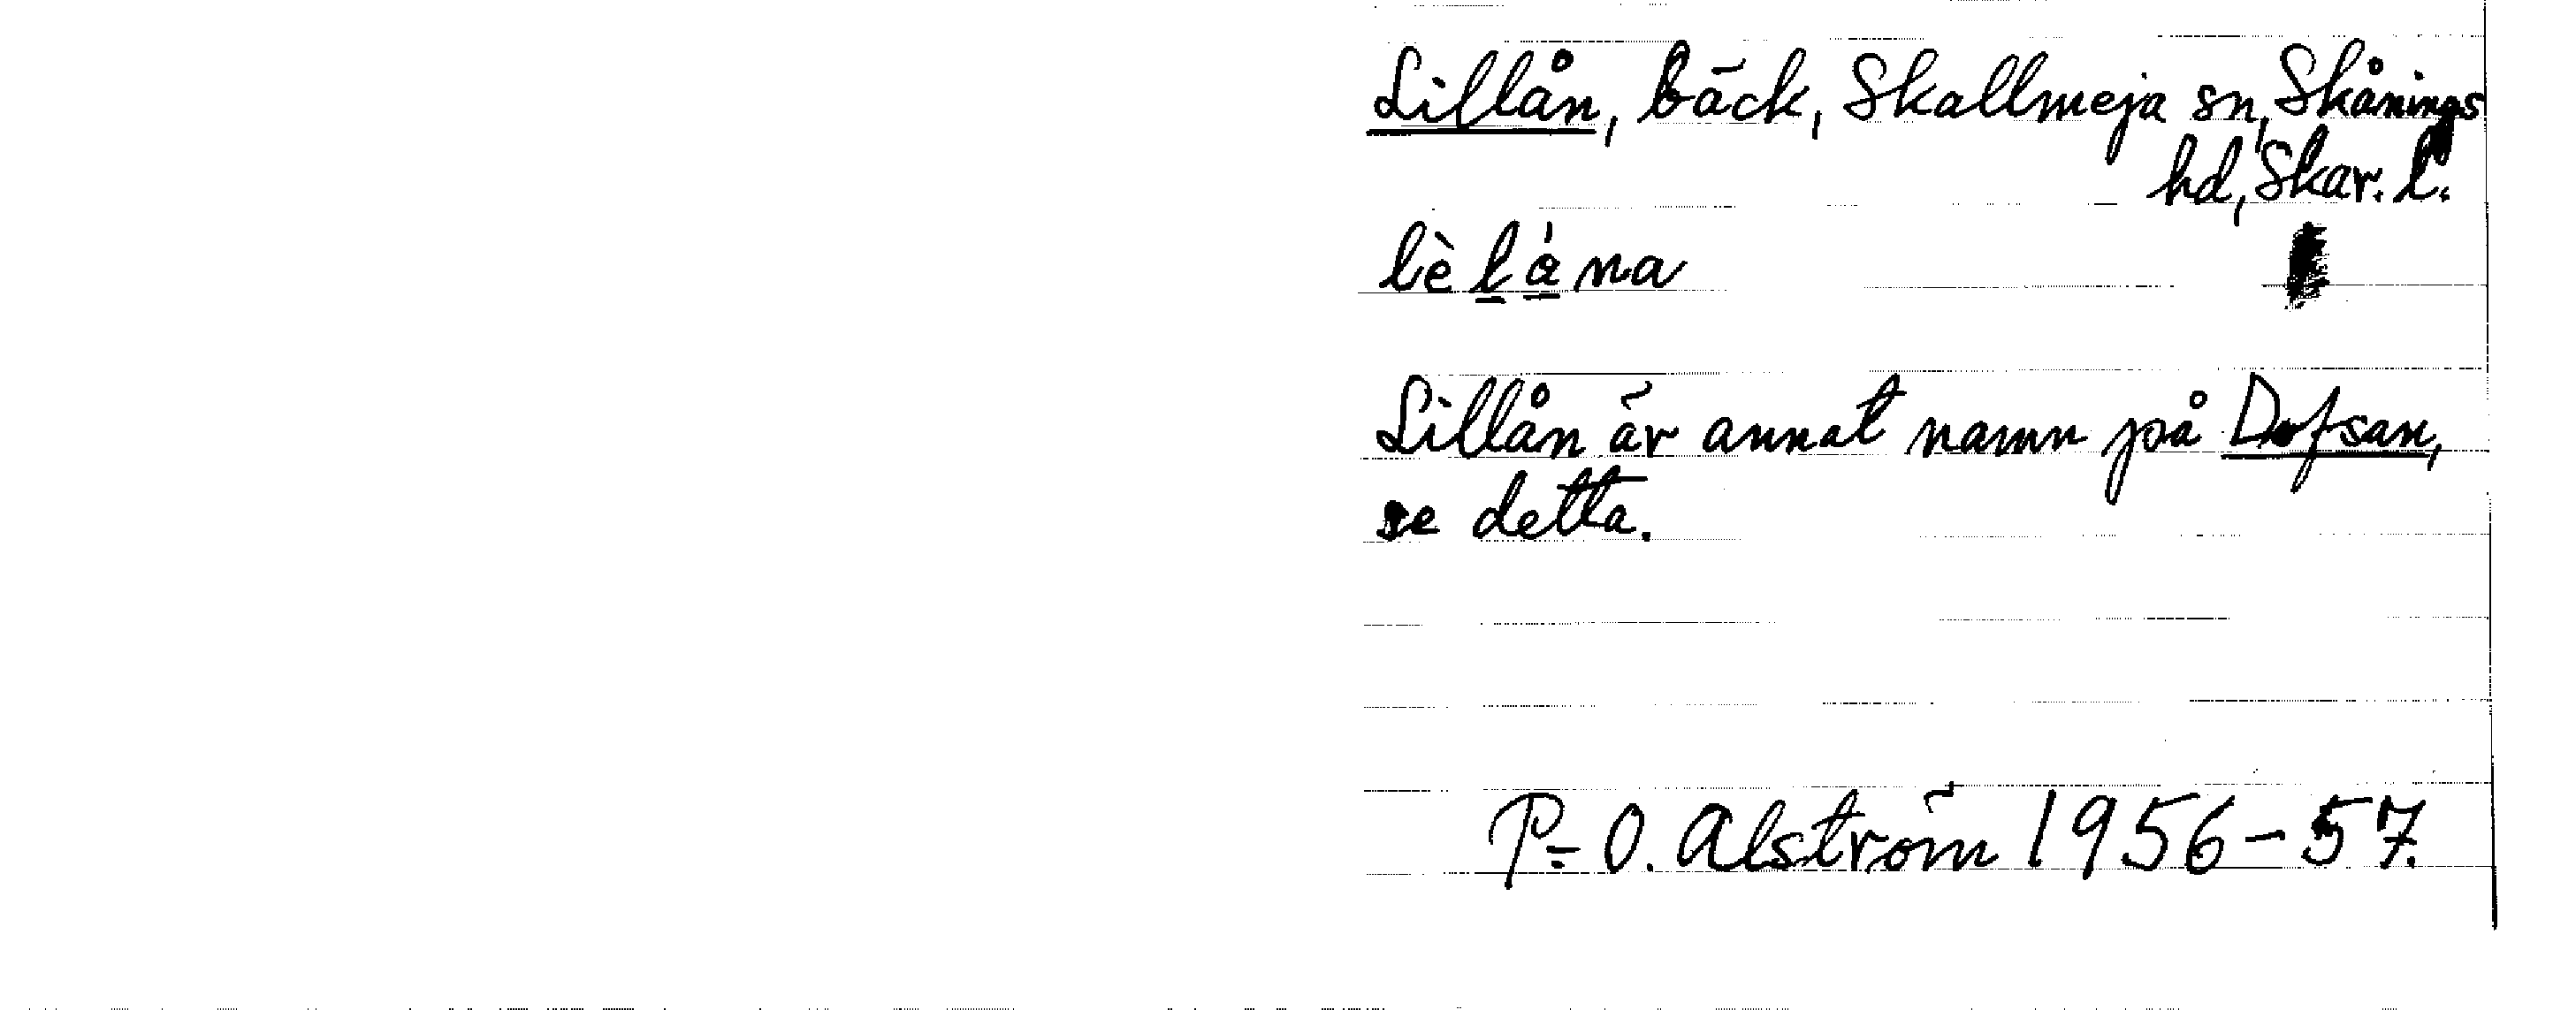 Lillån, bäck, Skallmeja sn, Skånings
hd, Skar. l.
lè l ǻ na
Lillån är annat namn på Dofsan,
se detta.
P-O. Alström 1956-57.